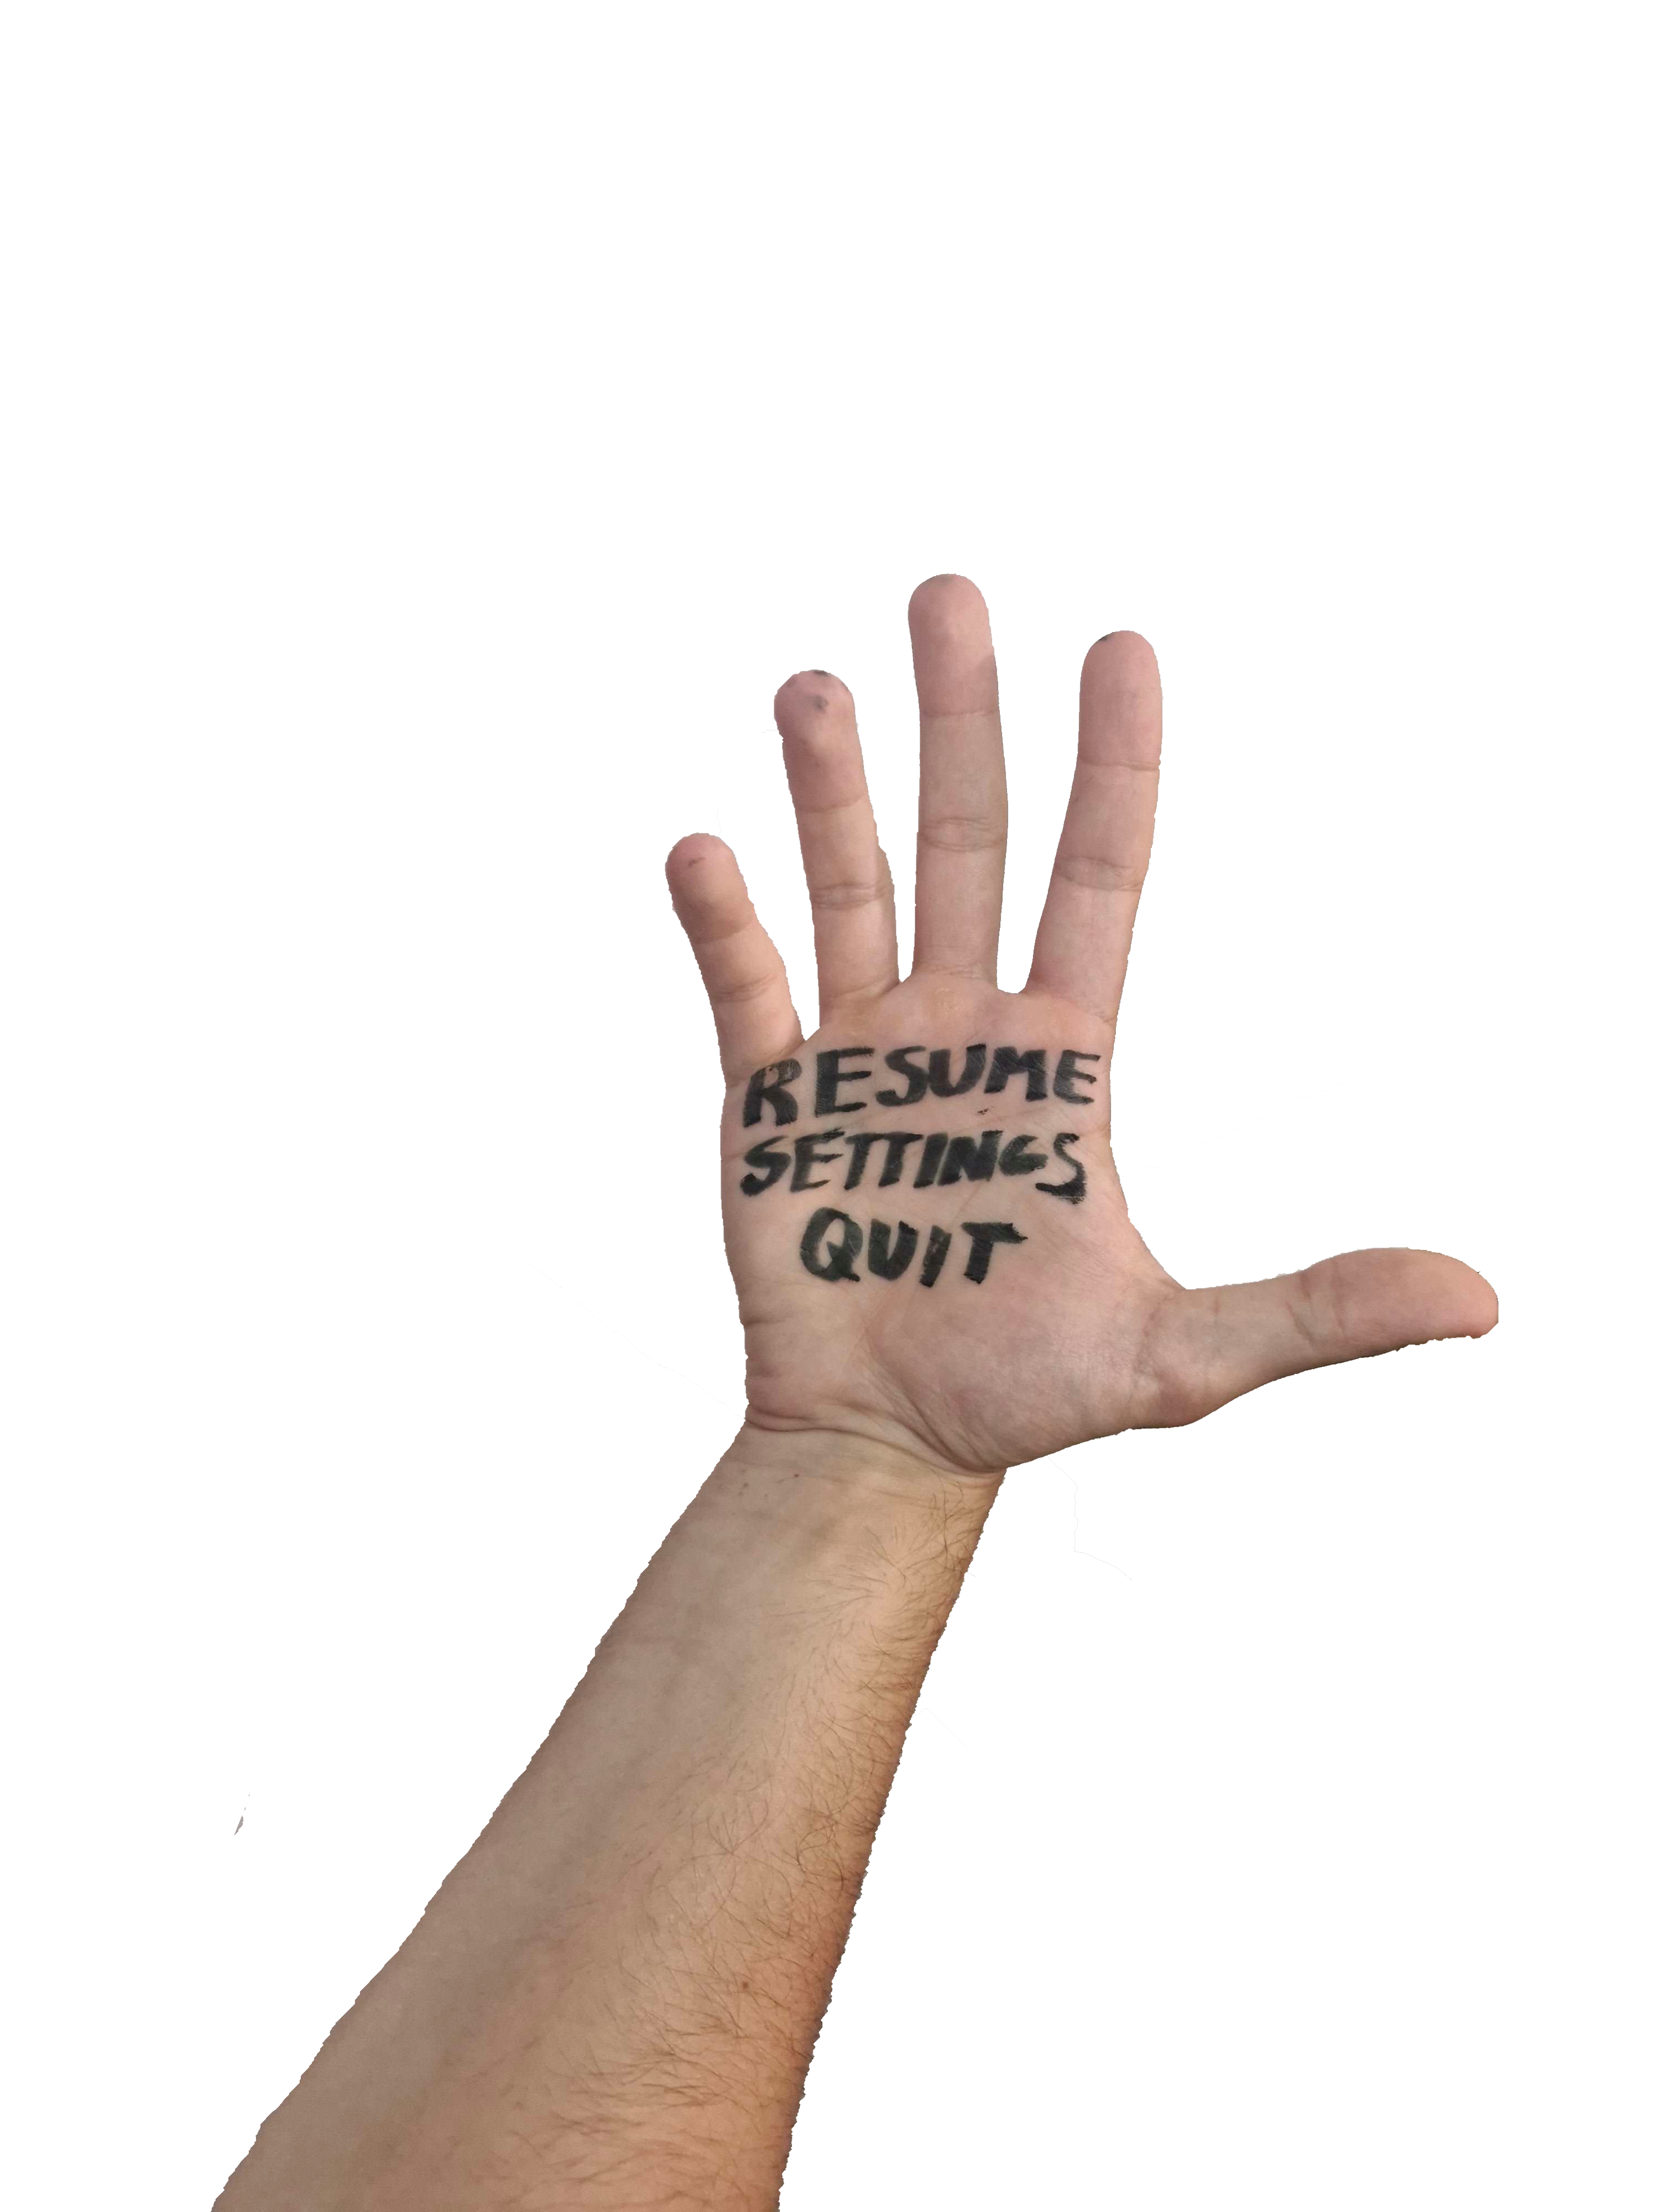 RESUME
SETTINGS
QUIT